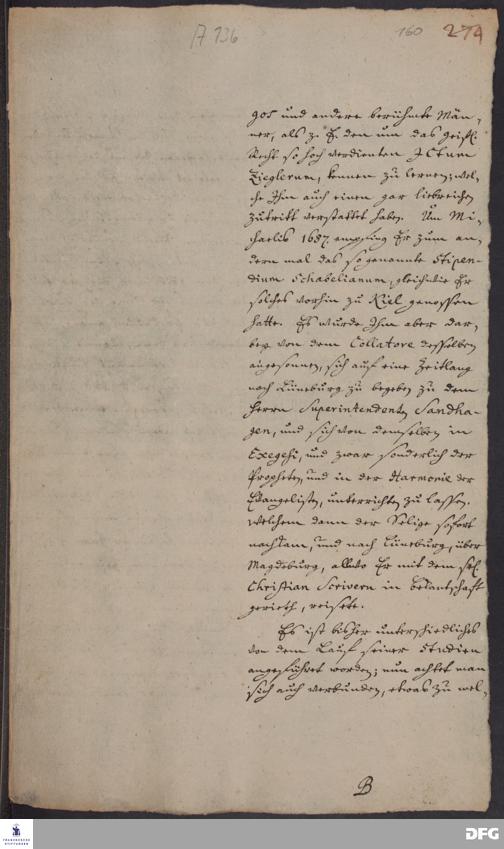 A 136 160 274
gos und andere berühmte Män-
ner, als z. E. den um das geistl.
Recht so hoch verdienten JCtum
Zieglerum, kennen zu lernen; wel-
che Ihm auch einen gar liebreichen
Zutritt verstattet haben. Um Mi-
chaelis 1687. empfing Er zum an-
dern mal das so genannte Stipen-
dium Schabelianum, gleichwie Er
solches vorhin zu Kiel genossen
hatte. Es wurde Ihm aber dar-
bey von dem Collatore desselben
angesonnen, sich auf eine Zeitlang
nach Lüneburg zu begeben zu dem
Herrn Superintendenten Sandha-
gen, und sich von demselben in
Exegesi, und zwar sonderlich der
Propheten, und in der Harmonie der
Evangelisten, unterrichten zu lassen.
Welchem dann der Selige sofort
nachkam, und nach Lüneburg, über
Magdeburg, allwo Er mit dem sel.
Christian Scrivern in bekantschaft
gerieth, reisete.
Es ist bisher unterschiedliches
von dem Lauf seiner Studien
angeführt worden; nun achtet man
sich auch verbunden, etwas zu mel-
B
FRANCKESCHE
STIFTUNGEN
DFG